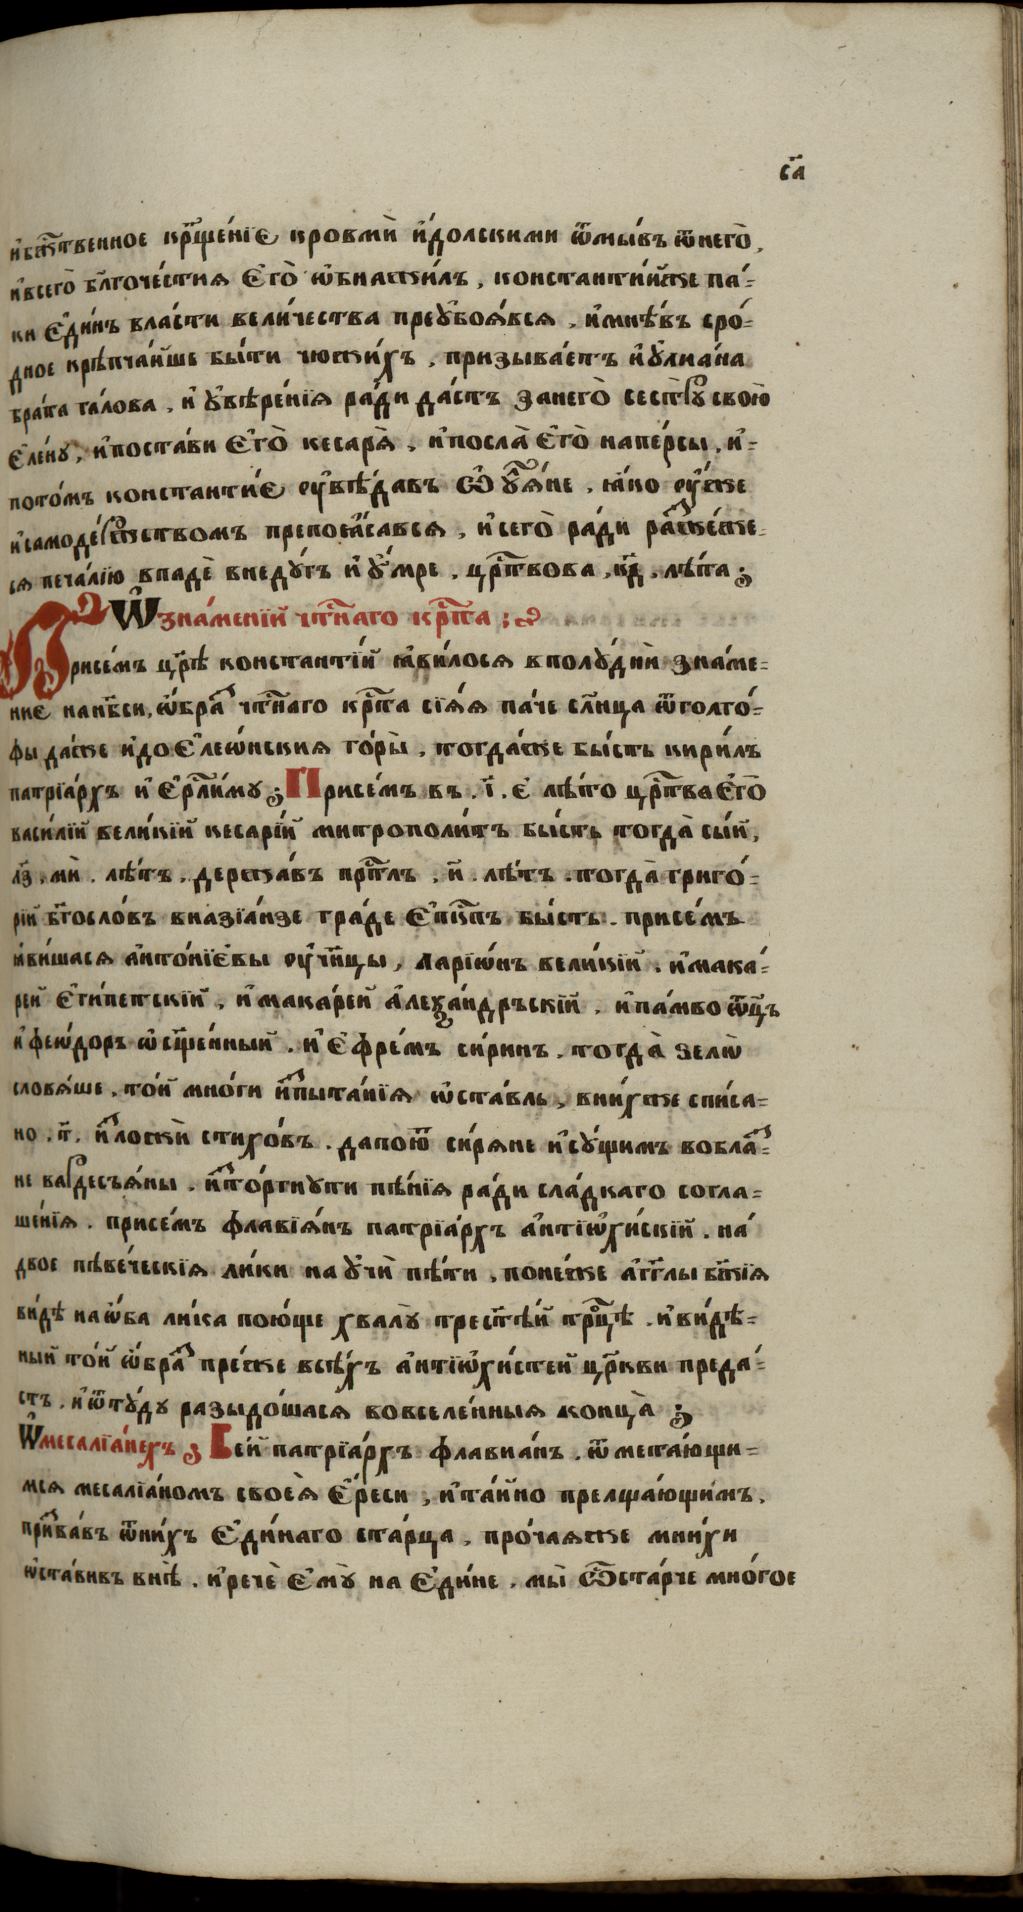 с҃а
и҆бж҃твенное крⷭ҇щение кровми̂ и҆́долскими ѿмы́въ ѿнего̀,
и҆всего̀ бл҃гоче́стия є҆го̀ ѡ҆бнажи́лъ, константи́й же па́-
ки є҆ди́нъ вла́сти вели́чества преꙋбоя́вся, и҆мнѣ́въ сро́-
дное крѣпча́йше бы́ти чюжи́хъ, призыва́етъ и҆ꙋ҆лиа́на
бра́та га́лова, и҆ ꙋ҆вѣре́нїя ра́ди да́стъ занего̀ сестрꙋ свою̀
є҆ле́нꙋ, и҆поста́ви є҆го̀ кесаря̀, и҆посла̀ є҆го̀ напе́рсы, и҆-
пото́мъ константи́е оу҆вѣ́давъ ѡ҆ ꙋ҆лия́не, ꙗ҆́ко оу҆́же
и҆самоде́ржствомъ препоꙗ́савася, и҆сего̀ ра́ди ражже́гже
ся печа́лїю впадѐ внедꙋ́гъ и҆ ꙋ҆́мре, црⷭ҇твова, к҃д, лѣ́та ;
Ѡ҆ зна́менїй чⷭ҇тнаго крⷭ҇та ;
Присе́мъ цр҃ѣ константі́й ꙗ҆ви́лося вполꙋ́дни̂ зна́ме-
ние нанб҃си, ѡ҆́браз чⷭ҇тнаго крⷭ҇та сїя́я па́че сл҃нца ѿголго́-
фы да́же и҆до є҆леѡ́нския горы̀, тогда́же бы́сть кири́лъ
патрїа́рхъ и҆ є҆рⷭ҇лимꙋ ; Присе́мъ въ . і҃ . є лѣ́то црⷭ҇тва є҆го̀
васи́лїй вели́кїй кесарі́й митрополи́тъ бы́сть тогда̀ сы́й,
лѣ҃ . ми́ . лѣ́тъ . держа́въ прⷭ҇тлъ . и҃ . лѣ́тъ . тогда̀ григо́-
рїй бг҃осло́въ вназїа́нзе гра́де є҆пⷭ҇пъ бы́сть . присе́мъ
ꙗ҆ви́шася а҆нто́нїе́вы оу҆ч҃ницы, ларїѡ́нъ вели́кїй . и҆мака́-
рей є҆ги́петскїй, и҆мака́рей а҆леѯа́ндръскїй . и҆па́мво ѻ҆ц҃ъ
и҆ феѡ́доръ ѡ҆сщ҃е́нный . и҆ є҆фре́мъ си́ринъ . тогда̀ зелѡ̀
словя́ше . то́й мно́ги и҆спыта́нїя ѡ҆ста́вль, вни́хже спи́са-
но . т҃ . и҆ложи̂ стихо́въ . дапою́т си́ряне и҆сꙋ́щимъ вобла-
не вардесъя́ны . и҆сто́ргнꙋти пѣ́нїя ра́ди сла́дкаго согла-
ше́нїя . присе́мъ флавїя́нъ патрїа́рхъ а҆нтїѡхі́йскїй . на́
двое пѣве́ческїя ли́ки наꙋ҆чи̂ пѣ́ти, поне́же а҆́гг҃лы бж҃їя
ви́дѣ наѡ҆́ба ли́ка пою́ще хвалꙋ̀ прест҃ѣ́й трⷪ҇цѣ . и҆ви́дѣ-
ный то́й ѡ҆́браз пре́же всѣ́хъ а҆нтїѡхі́стей цр҃кви преда́-
стъ . и҆ѿтꙋ́дꙋ разыдо́шася вовселе́нныя конца̀ ;
Ѡ҆ месалїа́нехъ ; Сей патрїа́рхъ флавиа́нъ . ѿмета́ющи-
мся месалїа́номъ своея̀ є҆́реси, и҆та́йно прелща́ющимъ,
призва́въ ѿни́хъ є҆ди́наго ста́рца, про́чаяже мни́хи
ѡ҆ста́вивъ внѣ̀ . и҆речѐ є҆мꙋ̀ на є҆ди́не . мы̀ ѽ ста́рче мно́гое